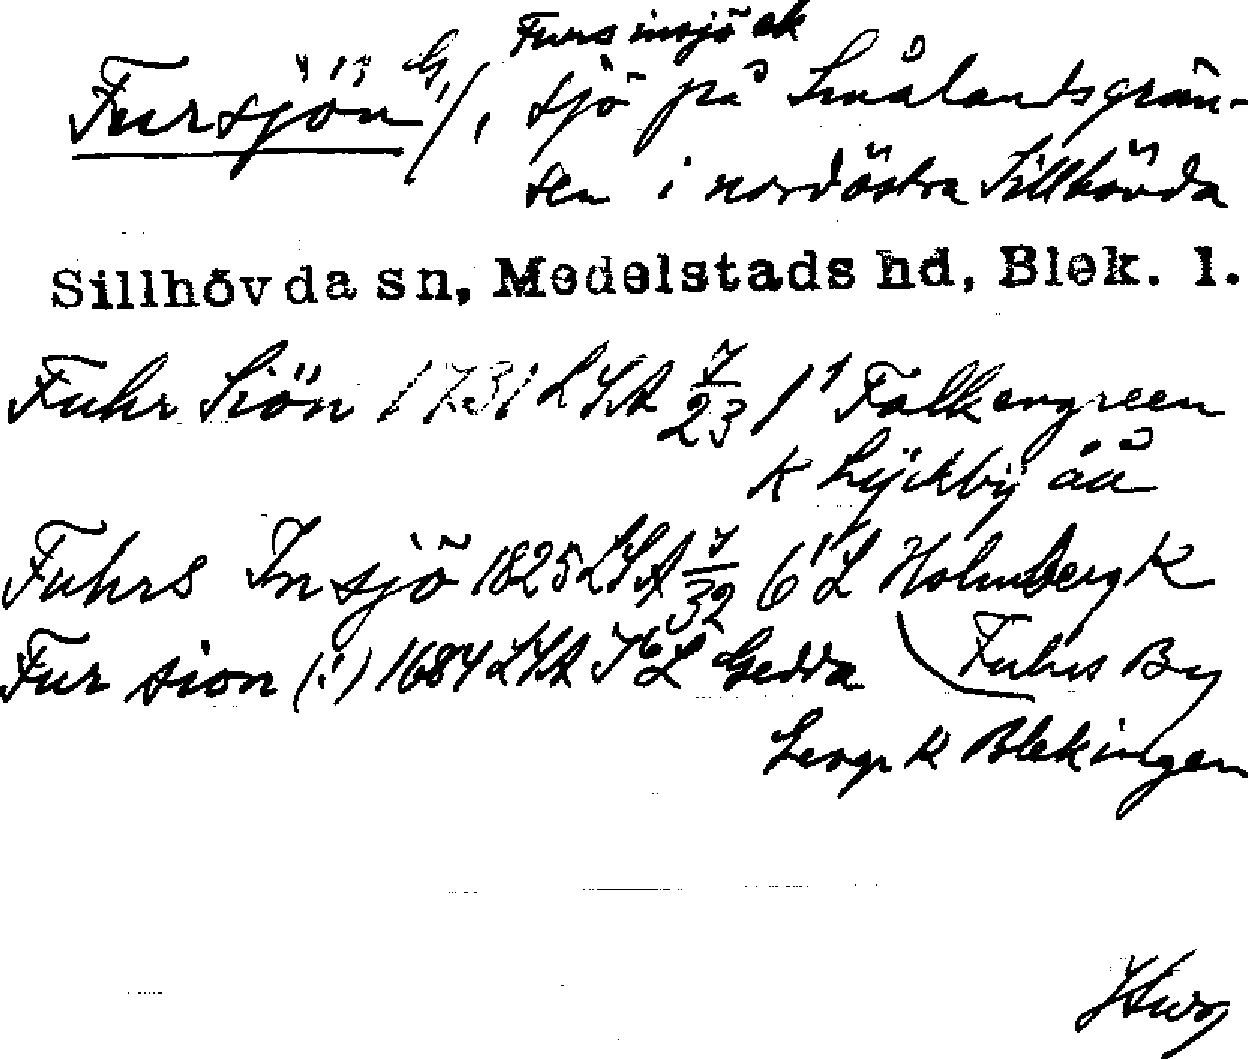 Furs insjö ek
Fursjön G/, sjö på Smålandsgrän-
sen i nordöstra Sillhövda
Sillhövda sn, Medelstads hd, Blek. l.
Fuhr Siön 1731 LSA 7/23 1¹ Falkengreen
K Lyckby åå
Fuhrs Insjö 1825 LSA 7/32 6¹ L Holmberg K
Fur sion (!) 1684 LSA L Gedda Fuhrs By
K Blekingen